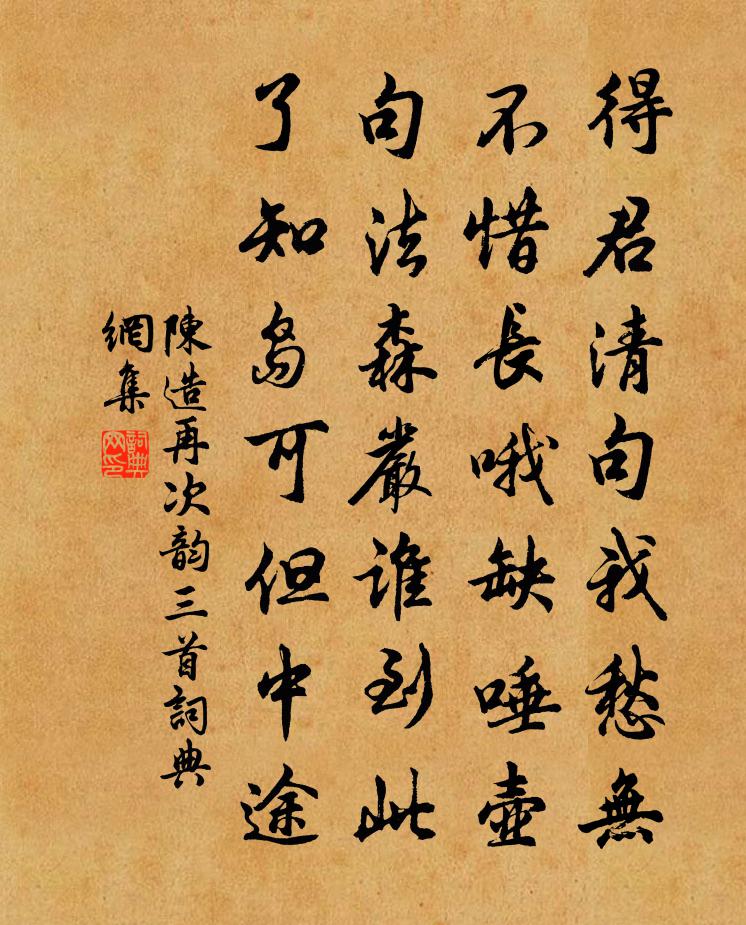 得君清句我愁無
不惜長哦缺唾壺
句法森嚴誰到此
了知島可但中途
陳造再次韵三首詞典
網集
詞典
网印